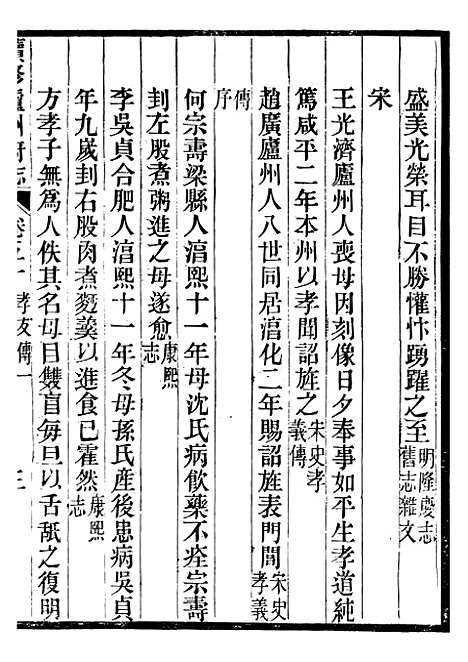 盛美光榮耳目不勝懽忭踴躍之至明隆慶志舊志雜文
宋
王光濟廬州人喪母因刻像日夕奉事如平生孝道純
篤咸平二年本州以孝聞詔旌之宋史孝義傳
趙廣廬州人八世同居湻化二年賜詔旌表門閭宋史孝義
傳序
何宗壽梁縣人湻熙十一年母沈氏病飲藥不痊宗壽
刲左股煮粥進之母遂愈康熙志
李吳貞合肥人湻熙十一年冬母孫氏產後患病吳貞
年九歲刲右股肉煮麪羹以進食已霍然康熙志
方孝子無爲人佚其名母目雙盲每旦以舌舐之復明
續修廬州府志 卷五十 孝友傳一 三